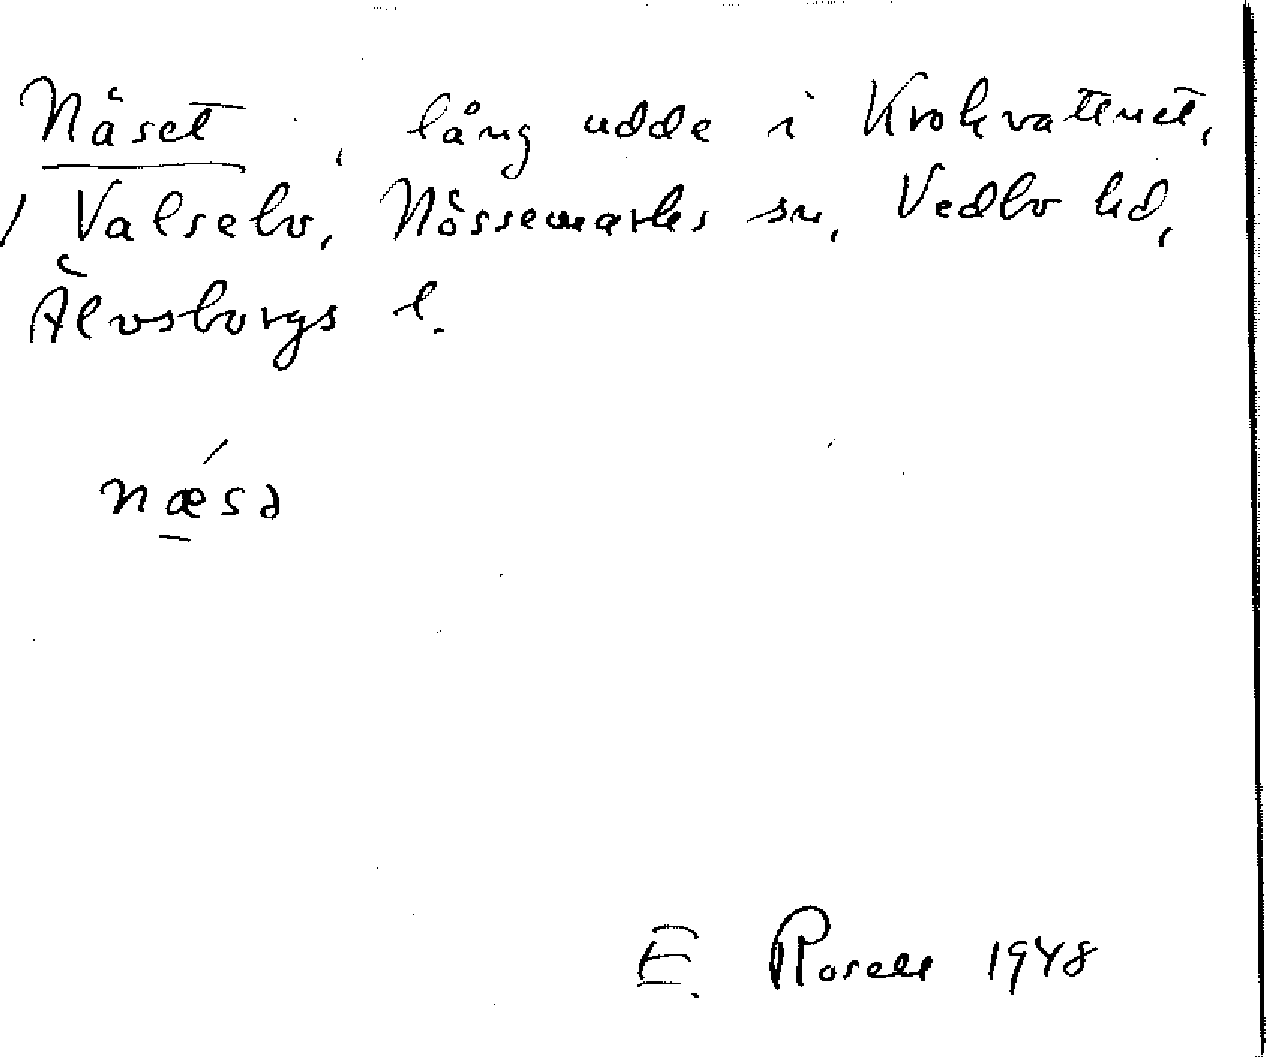 Näset, lång udde i Krokvattnet,
/ Valsebo, Nössemarks sn, Vedbo hd,
Älvsborgs l.
næ´sə
E. Rosell 1948